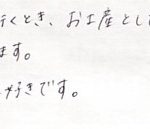 行くとき、お土産とし
ます。
好きです。